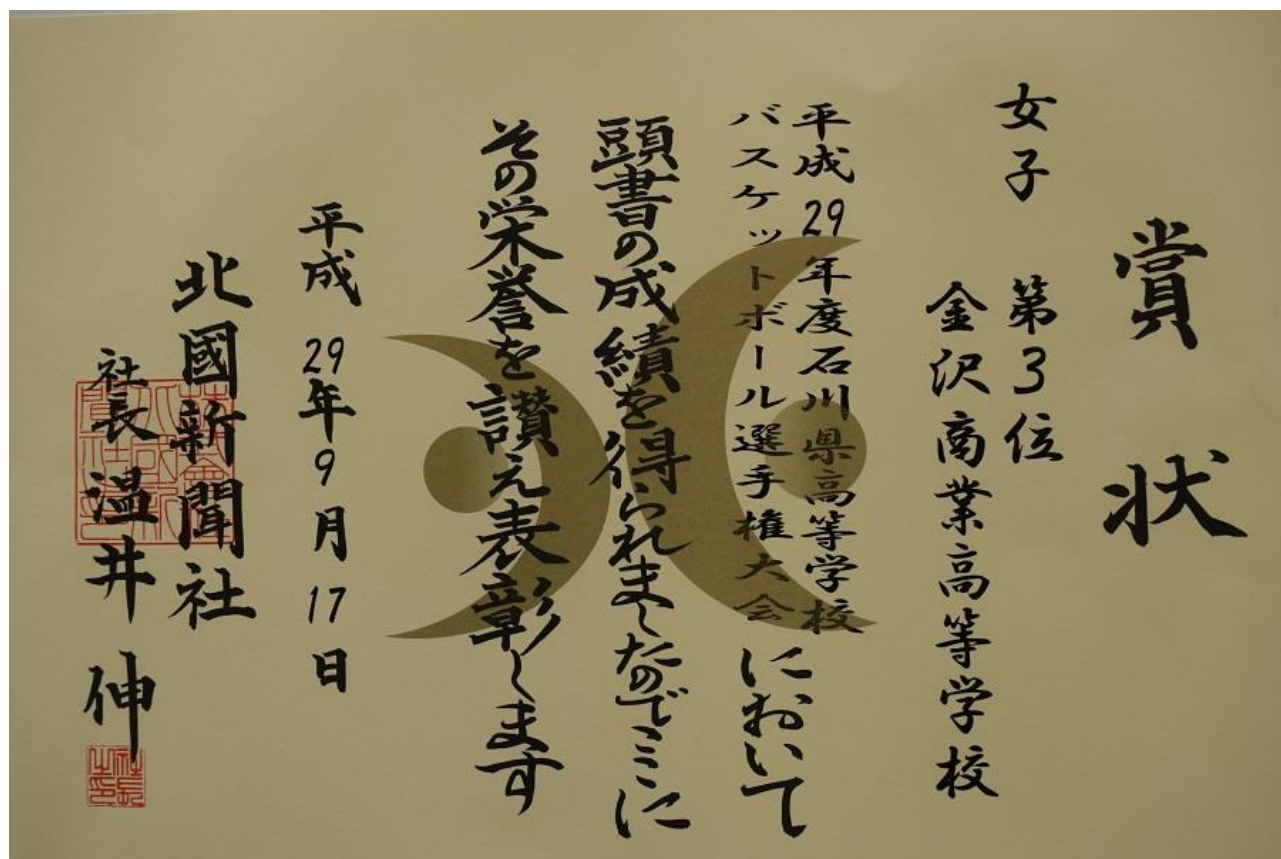 賞状
女子 第3位
金沢商業高等学校
平成29年度石川県高等学校
バスケットボール選手権大会において
頭書の成績を得られましたのでここに
その栄誉を讃え表彰します
平成29年9月17日
北國新聞社
社長 温井伸